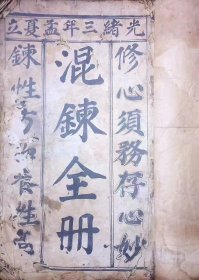 光緒三年孟夏立
修心須務存心妙
混鍊全册
鍊性養生